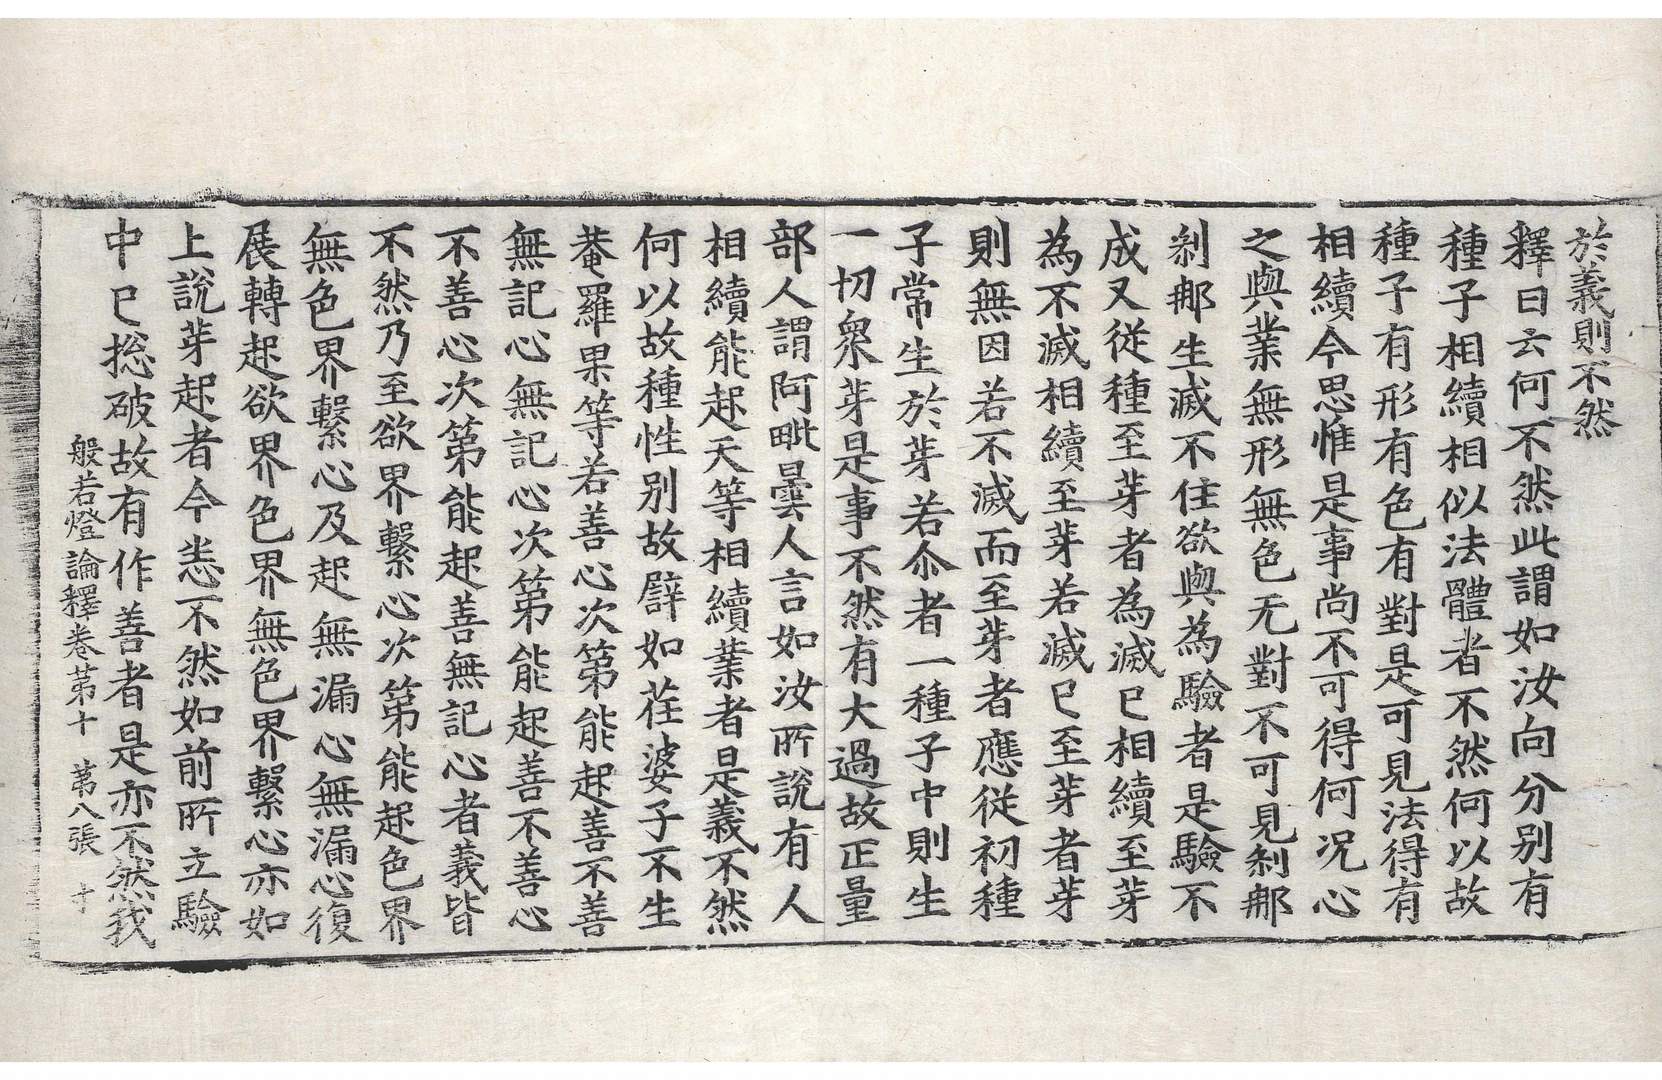 於義則不然
釋曰云何不然此謂如汝向分別有
種子相續相似法體者不然何以故
種子有形有色有對是可見法得有
相續今思惟是事尚不可得何況心
之與業無形無色无對不可見剎那
剎那生滅不住欲與為驗者是驗不
成又從種至芽者為滅已相續至芽
為不滅相續至芽若滅已至芽者芽
則無因若不滅而至芽者應從初種
子常生於芽若尒者一種子中則生
一切衆芽是事不然有大過故正量
部人謂阿毗曇人言如汝所說有人
相續能起天等相續業者是義不然
何以故種性別故譬如荏婆子不生
菴羅果等若善心次第能起善不善
無記心無記心次第能起善不善心
不善心次第能起善無記心者義皆
不然乃至欲界繫心次第能起色界
無色界繫心及起無漏心無漏心復
展轉起欲界色界無色界繫心亦如
上說芽起者今恙不然如前所立驗
中已捴破故有作善者是亦不然我
般若燈論釋卷第十 第八張 才